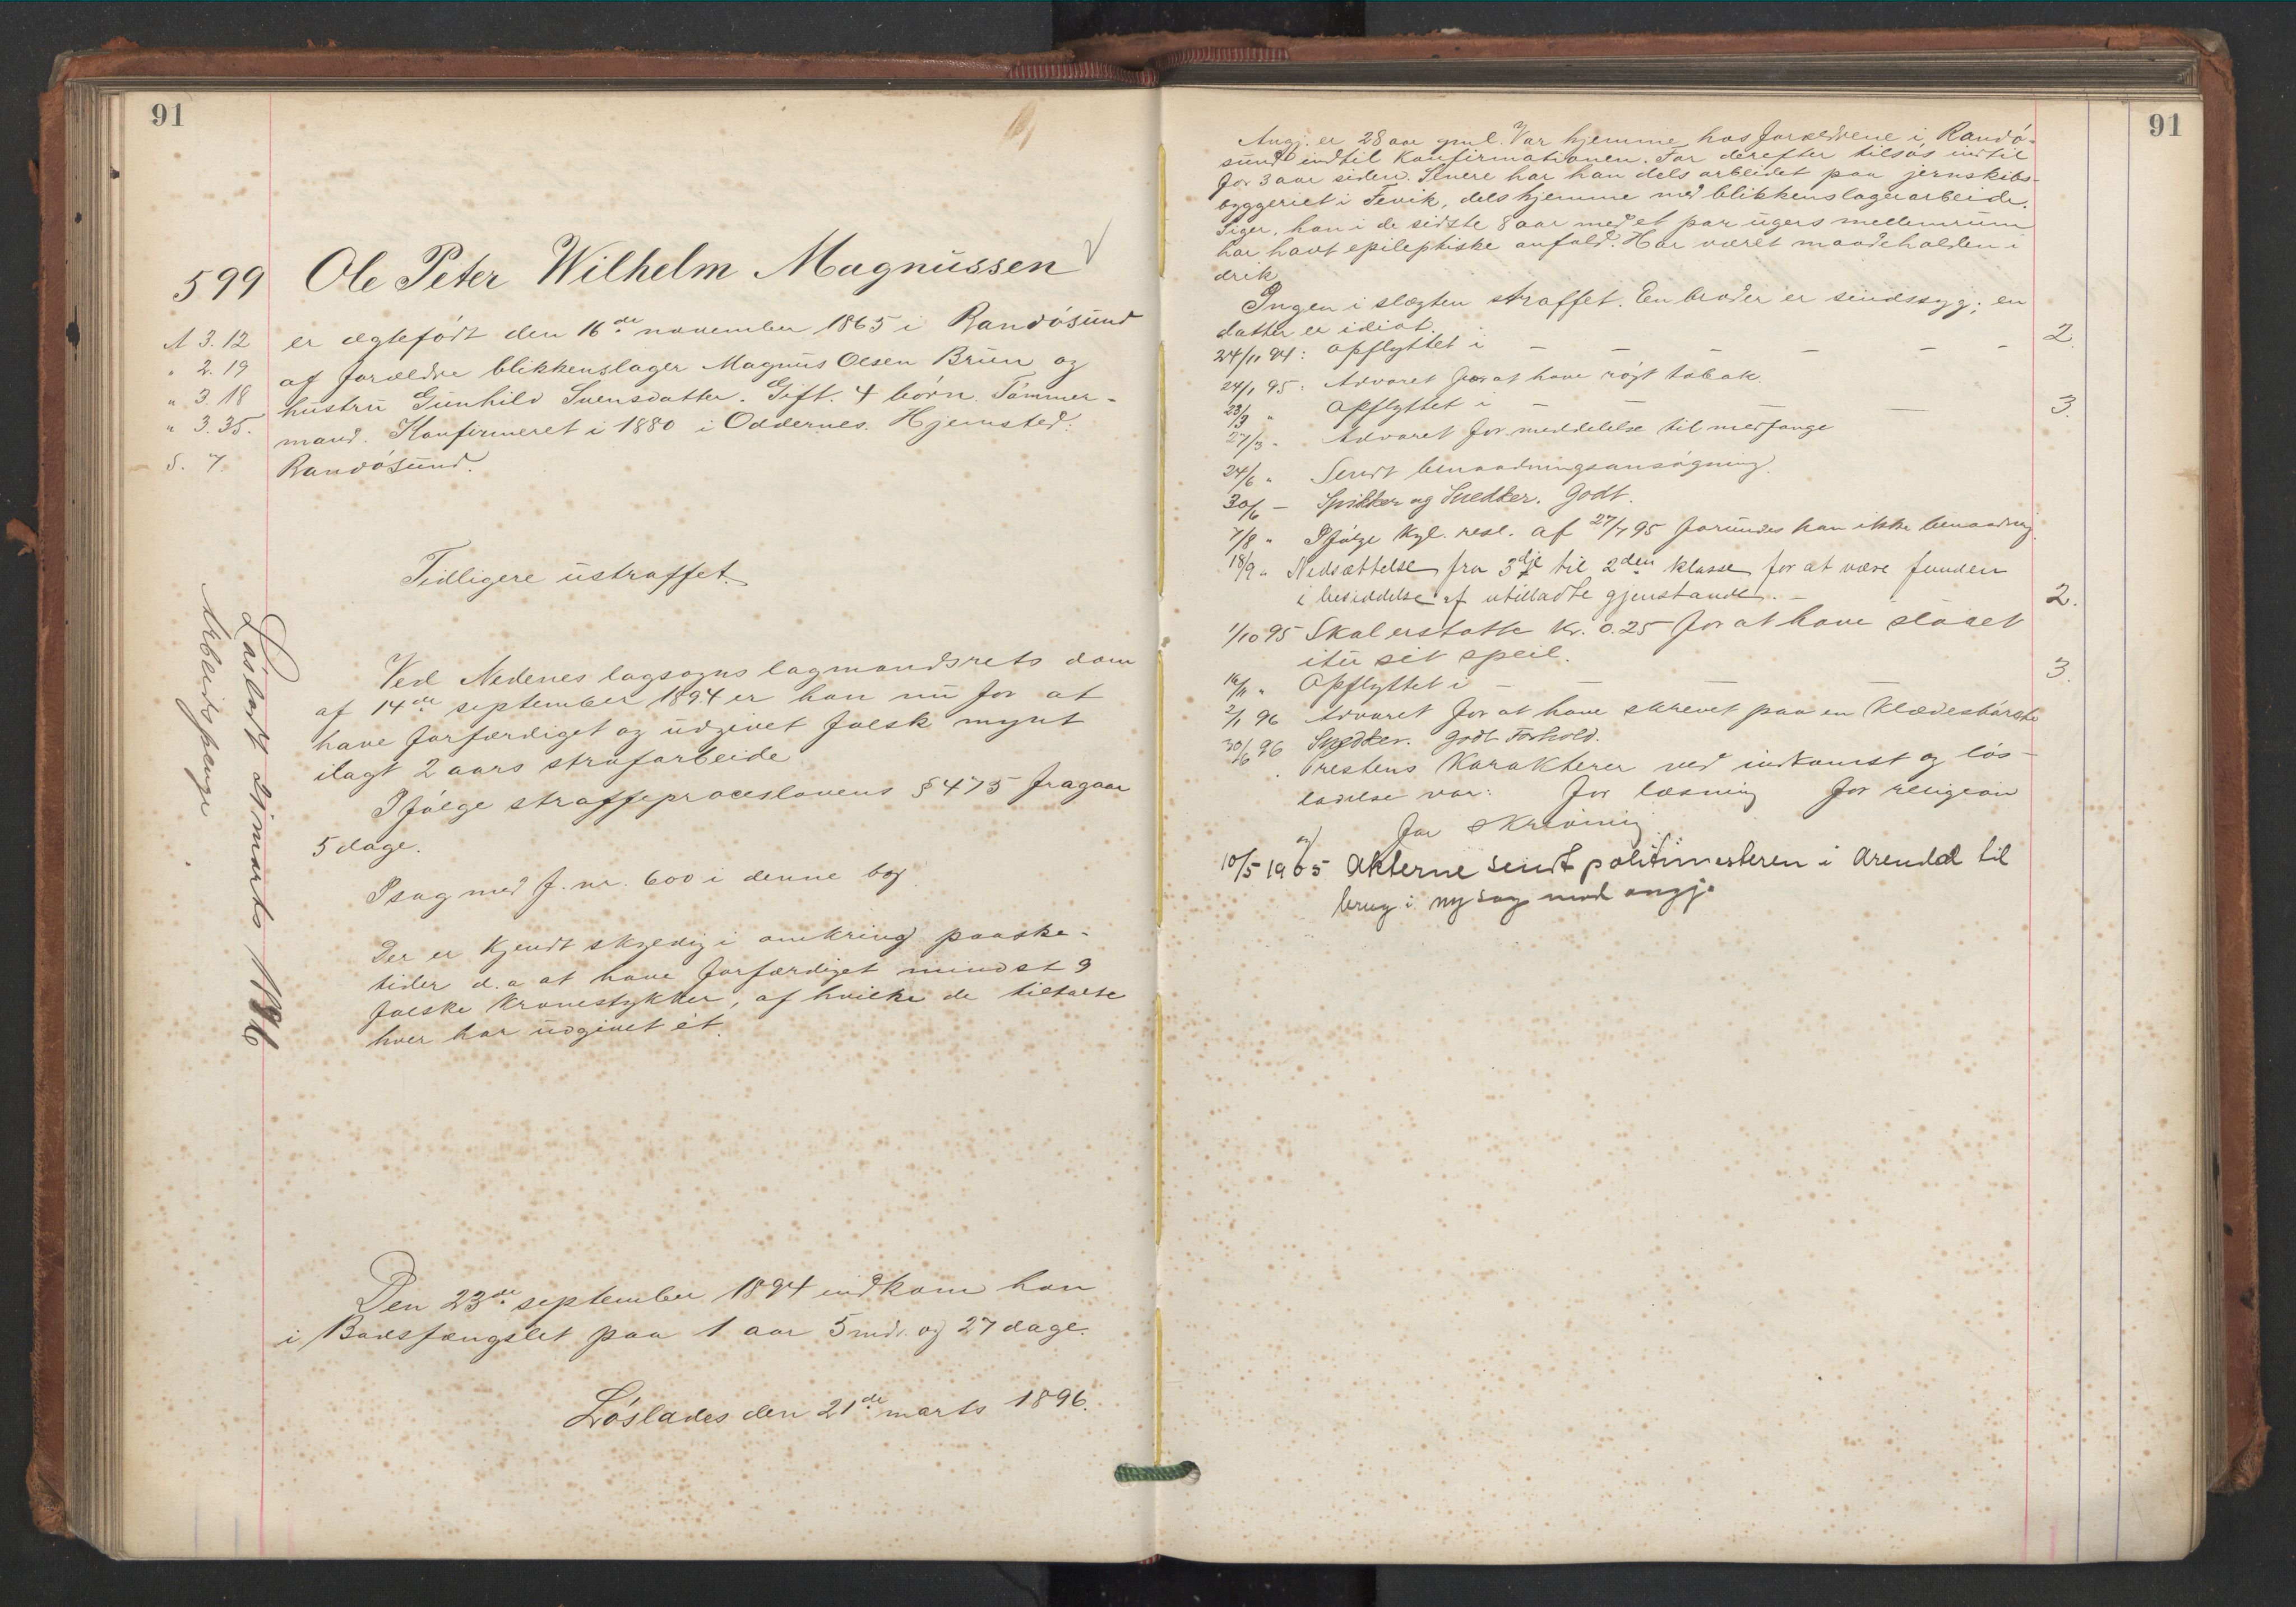 91
599 Ole Peter Wilhelm Magnussen
A 3.12 er ægtefødt den 16de november 1865 i Randøsund
" 2.19 af forældre blikkenslager Magnus Olsen Bruun og
" 3.18 hustru Gunhild Svensdatter. Gift. 4 børn. Tømmer-
" 3.35. mand. Konfirmeret i 1880 i Oddernes. Hjemsted:
S. 7. Randøsund.
Tidligere ustraffet.
Ved Nedenes lagsogns lagmandsrets dom
af 14de september 1894 er han nu for at
have forfærdiget og udgivet falsk mynt
ilagt 2 aars strafarbeide
Ifølge straffeproceslovens § 475 fragaar
5 dage.
I sag med f. nr. 600 i denne bog.
Der er kjendt skyldig i omkring paaske-
tider d. a. at have forfærdiget mindst 9
falske kronestykker, af hvilke de tiltalte
hver har udgivet ét.
Den 23de september 1894 indkom han
i Bodsfængslet paa 1 aar 5 mdr. og 27 dage.
Løslades den 21de marts 1896.
Løsladt 21 marts 1896
Arbeidspenge
91
Angj. er 28 aar gml. Var hjemme hos forældrene i Randø-
sund indtil konfirmationen. Før derefter tilsøs indtil
for 3 aar siden. Senere har han dels arbeidet paa jernskibs-
byggeriet i Fevik, dels hjemme med blikkenslagerarbeide.
Siger, han i de sidste 8 aar med et par ugers mellemrum
har havt epileptiske anfald. Har været maadeholden i
drik.
Ingen i slægten straffet. En broder er sindssyg; en
datter er idiot.
24/11 94: Opflyttet i — — — — — — 2.
24/1 95: Advaret for at have røgt tobak.
23/3 " Opflyttet i — — — — 3.
27/3 " Advaret for meddelelse til medfange
24/6 " Sendt benaadningsansøgning.
30/6 — Spikker og Snedker. Godt.
7/8 " Ifølge kgl. resl. af 27/7 95 forundes han ikke benaadning.
18/9 " Nedsættelse fra 3dje til 2den klasse for at være funden
i besiddelse af utilladte gjenstande. — 2.
1/10 95 Skal erstatte kr. 0.25 for at have slaaet
itu sit speil.
16/11 " Opflyttet i — — — — 3.
2/1 96 Advaret for at have skrevet paa en klædesbørste
30/6 96 Snedker. Godt Forhold.
Prestens karakterer ved indkomst og løs-
ladelse var: for læsning for religion
og for skrivning
10/5 1905 Akterne sendt politimesteren i Arendal til
brug i ny sag mod angj.